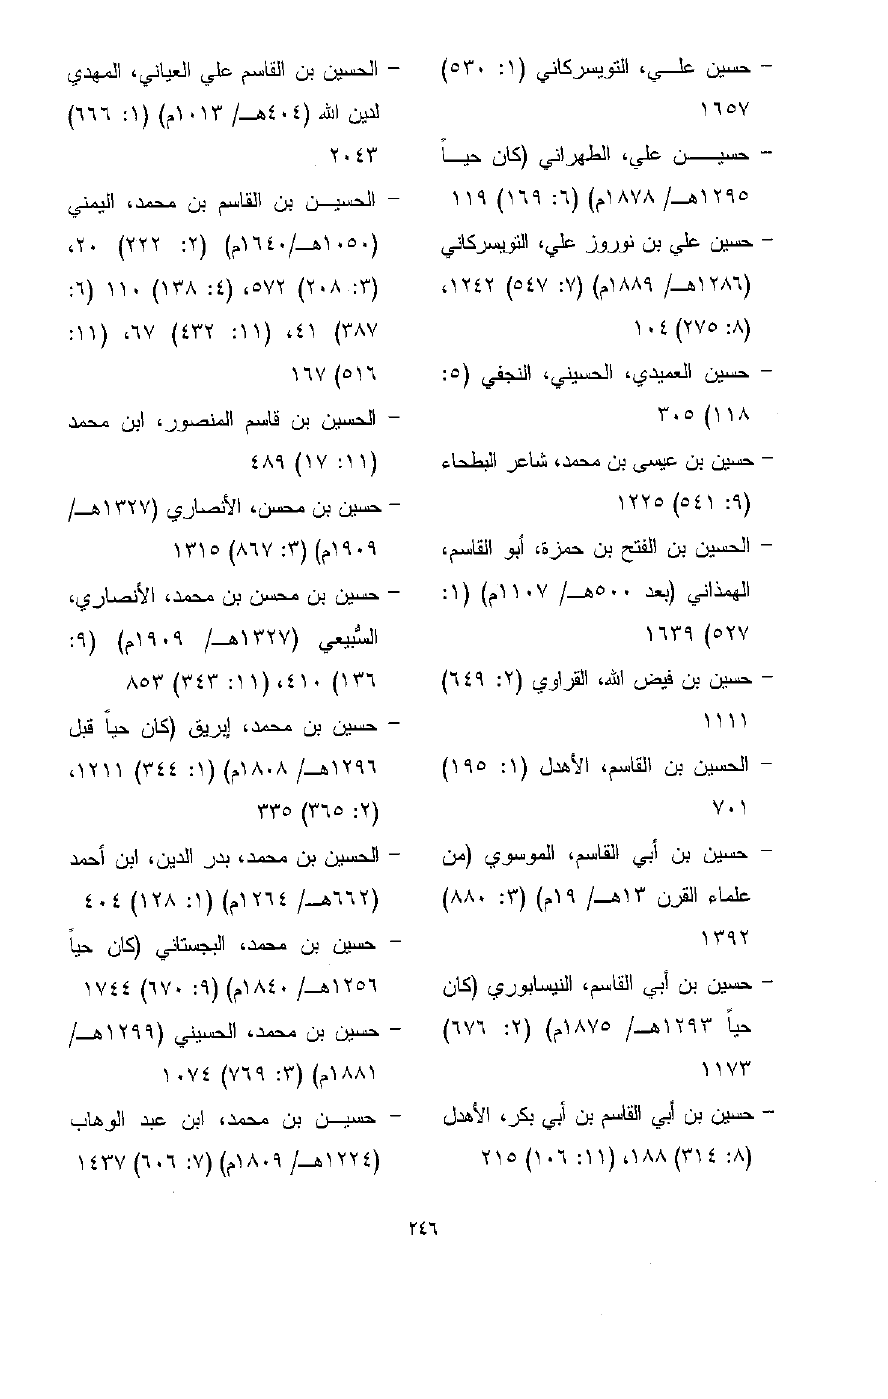 - حسين علي، التويسركاني (١: ٥٣٠)
١٦٥٧
- حسين علي، الطهراني (كان حياً
١٢٩٥هـ/ ١٨٧٨م) (٦: ١٦٩) ١١٩
- حسين علي بن نوروز علي، التويسركاني
(١٢٨٦هـ/ ١٨٨٩م) (٧: ٥٤٧) ١٢٤٢،
(٨: ٢٧٥) ١٠٤
- حسين العميدي، الحسيني، النجفي (٥:
١١٨) ٣٠٥
- حسين بن عيسى بن محمد، شاعر البطحاء
(٩: ٥٤١) ١٢٢٥
- الحسين بن الفتح بن حمزة، أبو القاسم،
الهمذاني (بعد ٥٠٠هـ/ ١١٠٧م) (١:
٥٢٧) ١٦٣٩
- حسين بن فيض الله، القراوي (٢: ٦٤٩)
١١١١
- الحسين بن القاسم، الأهدل (١: ١٩٥)
٧٠١
- حسين بن أبي القاسم، الموسوي (من
علماء القرن ١٣هـ/ ١٩م) (٣: ٨٨٠)
١٣٩٢
- حسين بن أبي القاسم، النيسابوري (كان
حياً ١٢٩٣هـ/ ١٨٧٥م) (٢: ٦٧٦)
١١٧٣
- حسين بن أبي القاسم بن أبي بكر، الأهدل
(٨: ٣١٤) ١٨٨، (١١: ١٠٦) ٢١٥
- الحسين بن القاسم علي العياني، المهدي
لدين الله (٤٠٤هـ/ ١٠١٣م) (١: ٦٦٦)
٢٠٤٣
- الحسين بن القاسم بن محمد، اليمني
(١٠٥٠هـ/١٦٤٠م) (٢: ٢٢٢) ٢٠،
(٣: ٢٠٨) ٥٧٢، (٤: ١٣٨) ١١٠ (٦:
٣٨٧) ٤١، (١١: ٤٣٢) ٦٧، (١١:
٥١٦) ١٦٧
- الحسين بن قاسم المنصور، ابن محمد
(١١: ١٧) ٤٨٩
- حسين بن محسن، الأنصاري (١٣٢٧هـ/
١٩٠٩م) (٣: ٨٦٧) ١٣١٥
- حسين بن محسن بن محمد، الأنصاري،
السُّبيعي (١٣٢٧هـ/ ١٩٠٩م) (٩:
١٣٦) ٤١٠، (١١: ٣٤٣) ٨٥٣
- حسين بن محمد، إبريق (كان حياً قبل
١٢٩٦هـ/ ١٨٠٨م) (١: ٣٤٤) ١٢١١،
(٢: ٣٦٥) ٣٣٥
- الحسين بن محمد، بدر الدين، ابن أحمد
(٦٦٢هـ/ ١٢٦٤م) (١: ١٢٨) ٤٠٤
- حسين بن محمد، البجستاني (كان حياً
١٢٥٦هـ/ ١٨٤٠م) (٩: ٦٧٠) ١٧٤٤
- حسين بن محمد، الحسيني (١٢٩٩هـ/
١٨٨١م) (٣: ٧٦٩) ١٠٧٤
- حسين بن محمد، ابن عبد الوهاب
(١٢٢٤هـ/ ١٨٠٩م) (٧: ٦٠٦) ١٤٣٧
٢٤٦